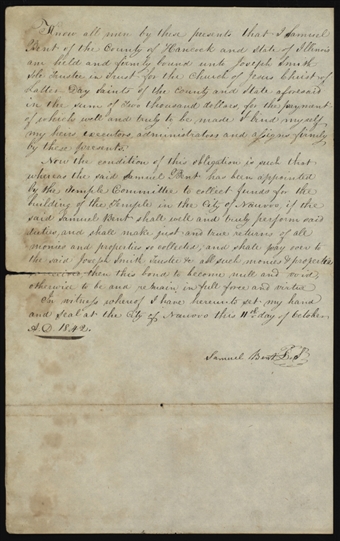 Know all men by these presents that I Samuel
Bent of the County of Hancock and State of Illinois
am held and firmly bound unto Joseph Smith
Sole Trustee in Trust for the Church of Jesus Christ of
Latter Day Saints of the County and State aforesaid
in the sum of Two thousand dollars, for the payment
of which well and truly to be made I bind myself
my heirs executors, administrators and assigns firmly
by these presents.
Now the condition of this obligation is such that
whereas the said Samuel Bent has been appointed
by the Temple Committee to collect funds for the
building of the Temple in the City of Nauvoo, if the
said Samuel Bent shall well and truly perform said
duties, and shall make just and true returns of all
monies and properties so collected, and shall pay over to
the said Joseph Smith Trustee &c all such monies & properties
then this bond to become null and void,
otherwise to be and remain in full force and virtue
In witness whereof I have hereunto set my hand
and seal at the City of Nauvoo this 11th day of October,
A.D. 1842.
Samuel Bent